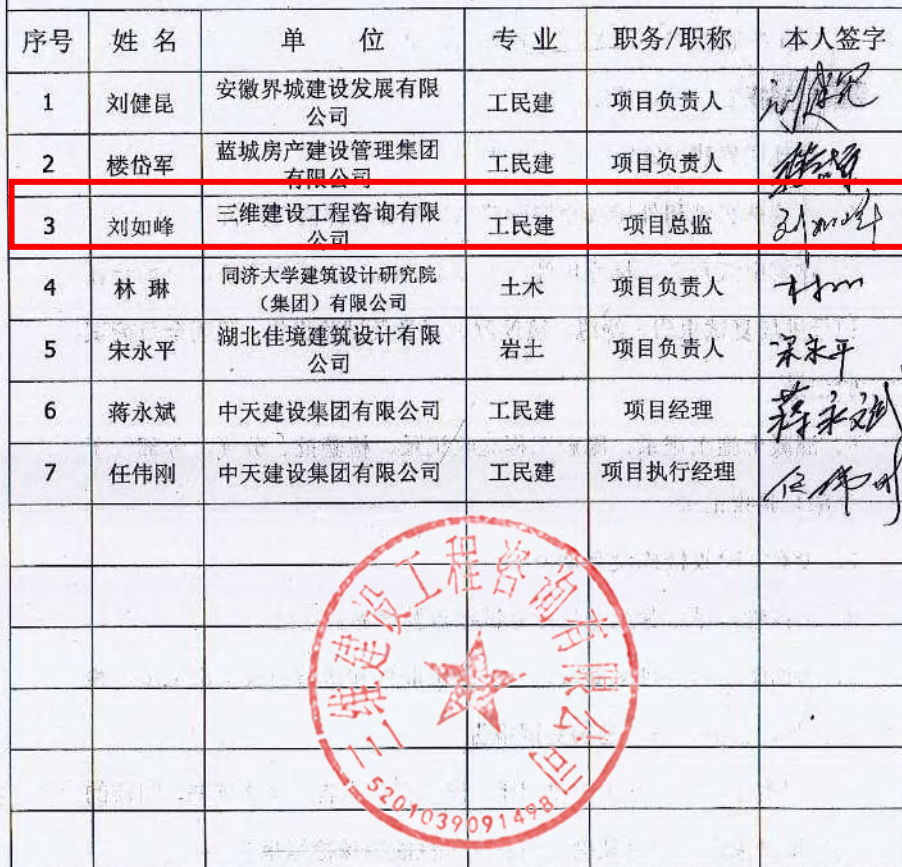 序号 姓名 单位 专业 职务/职称 本人签字
1 刘健昆 安徽界城建设发展有限公司 工民建 项目负责人 刘健昆
2 楼岱军 蓝城房产建设管理集团有限公司 工民建 项目负责人 楼岱军
3 刘如峰 三维建设工程咨询有限公司 工民建 项目总监 刘如峰
4 林琳 同济大学建筑设计研究院（集团）有限公司 土木 项目负责人 林琳
5 宋永平 湖北佳境建筑设计有限公司 岩土 项目负责人 宋永平
6 蒋永斌 中天建设集团有限公司 工民建 项目经理 蒋永斌
7 任伟刚 中天建设集团有限公司 工民建 项目执行经理 任伟刚
三维建设工程咨询有限公司
5201039091498